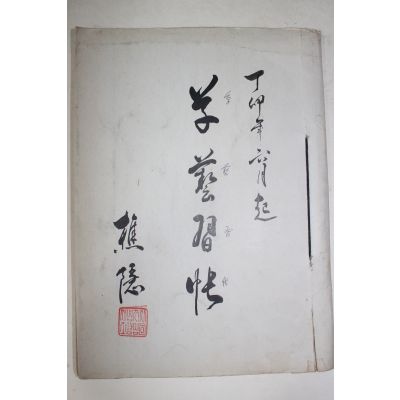 丁卯年六月起
学藝習帳
樵隱